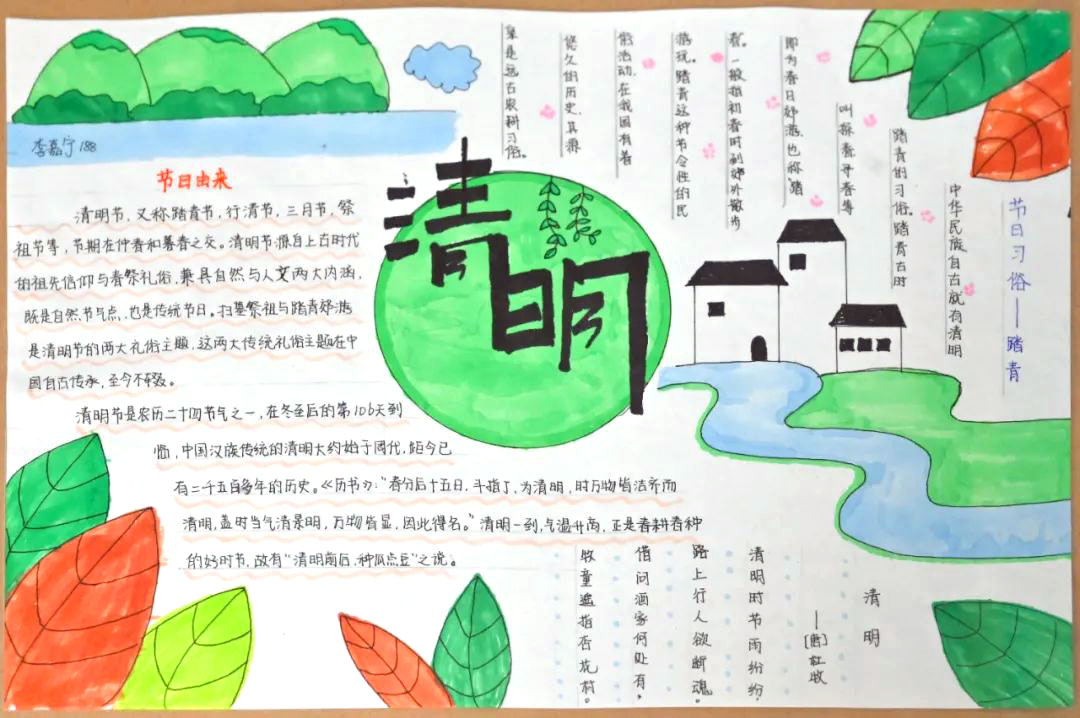 李嘉宁 188
节日由来
清明节,又称踏青节,行清节,三月节,祭
祖节等,节期在仲春和暮春之交。清明节源自上古时代
的祖先信仰与春祭礼俗,兼具自然与人文两大内涵,
既是自然节气点,也是传统节日。扫墓祭祖与踏青郊游
是清明节的两大礼俗主题,这两大传统礼俗主题在中
国自古传承,至今不辍。
清明节是农历二十四节气之一,在冬至后的第106天到
临,中国汉族传统的清明大约始于周代,距今已
有二千五百多年的历史。《历书》:“春分后十五日,斗指丁,为清明,时万物皆洁齐而
清明,盖时当气清景明,万物皆显,因此得名。”清明一到,气温升高,正是春耕春种
的好时节,故有“清明前后,种瓜点豆”之说。
清明
节日习俗——踏青
中华民族自古就有清明
踏青的习俗。踏青古时
叫探春寻春等
即为春日郊游,也称“踏
春”。一般指初春时到郊外散步
游玩。踏青这种节令性的民
俗活动,在我国有着
悠久的历史,其源
泉是远古农耕习俗。
清明
——[唐]杜牧
清明时节雨纷纷,
路上行人欲断魂。
借问酒家何处有,
牧童遥指杏花村。